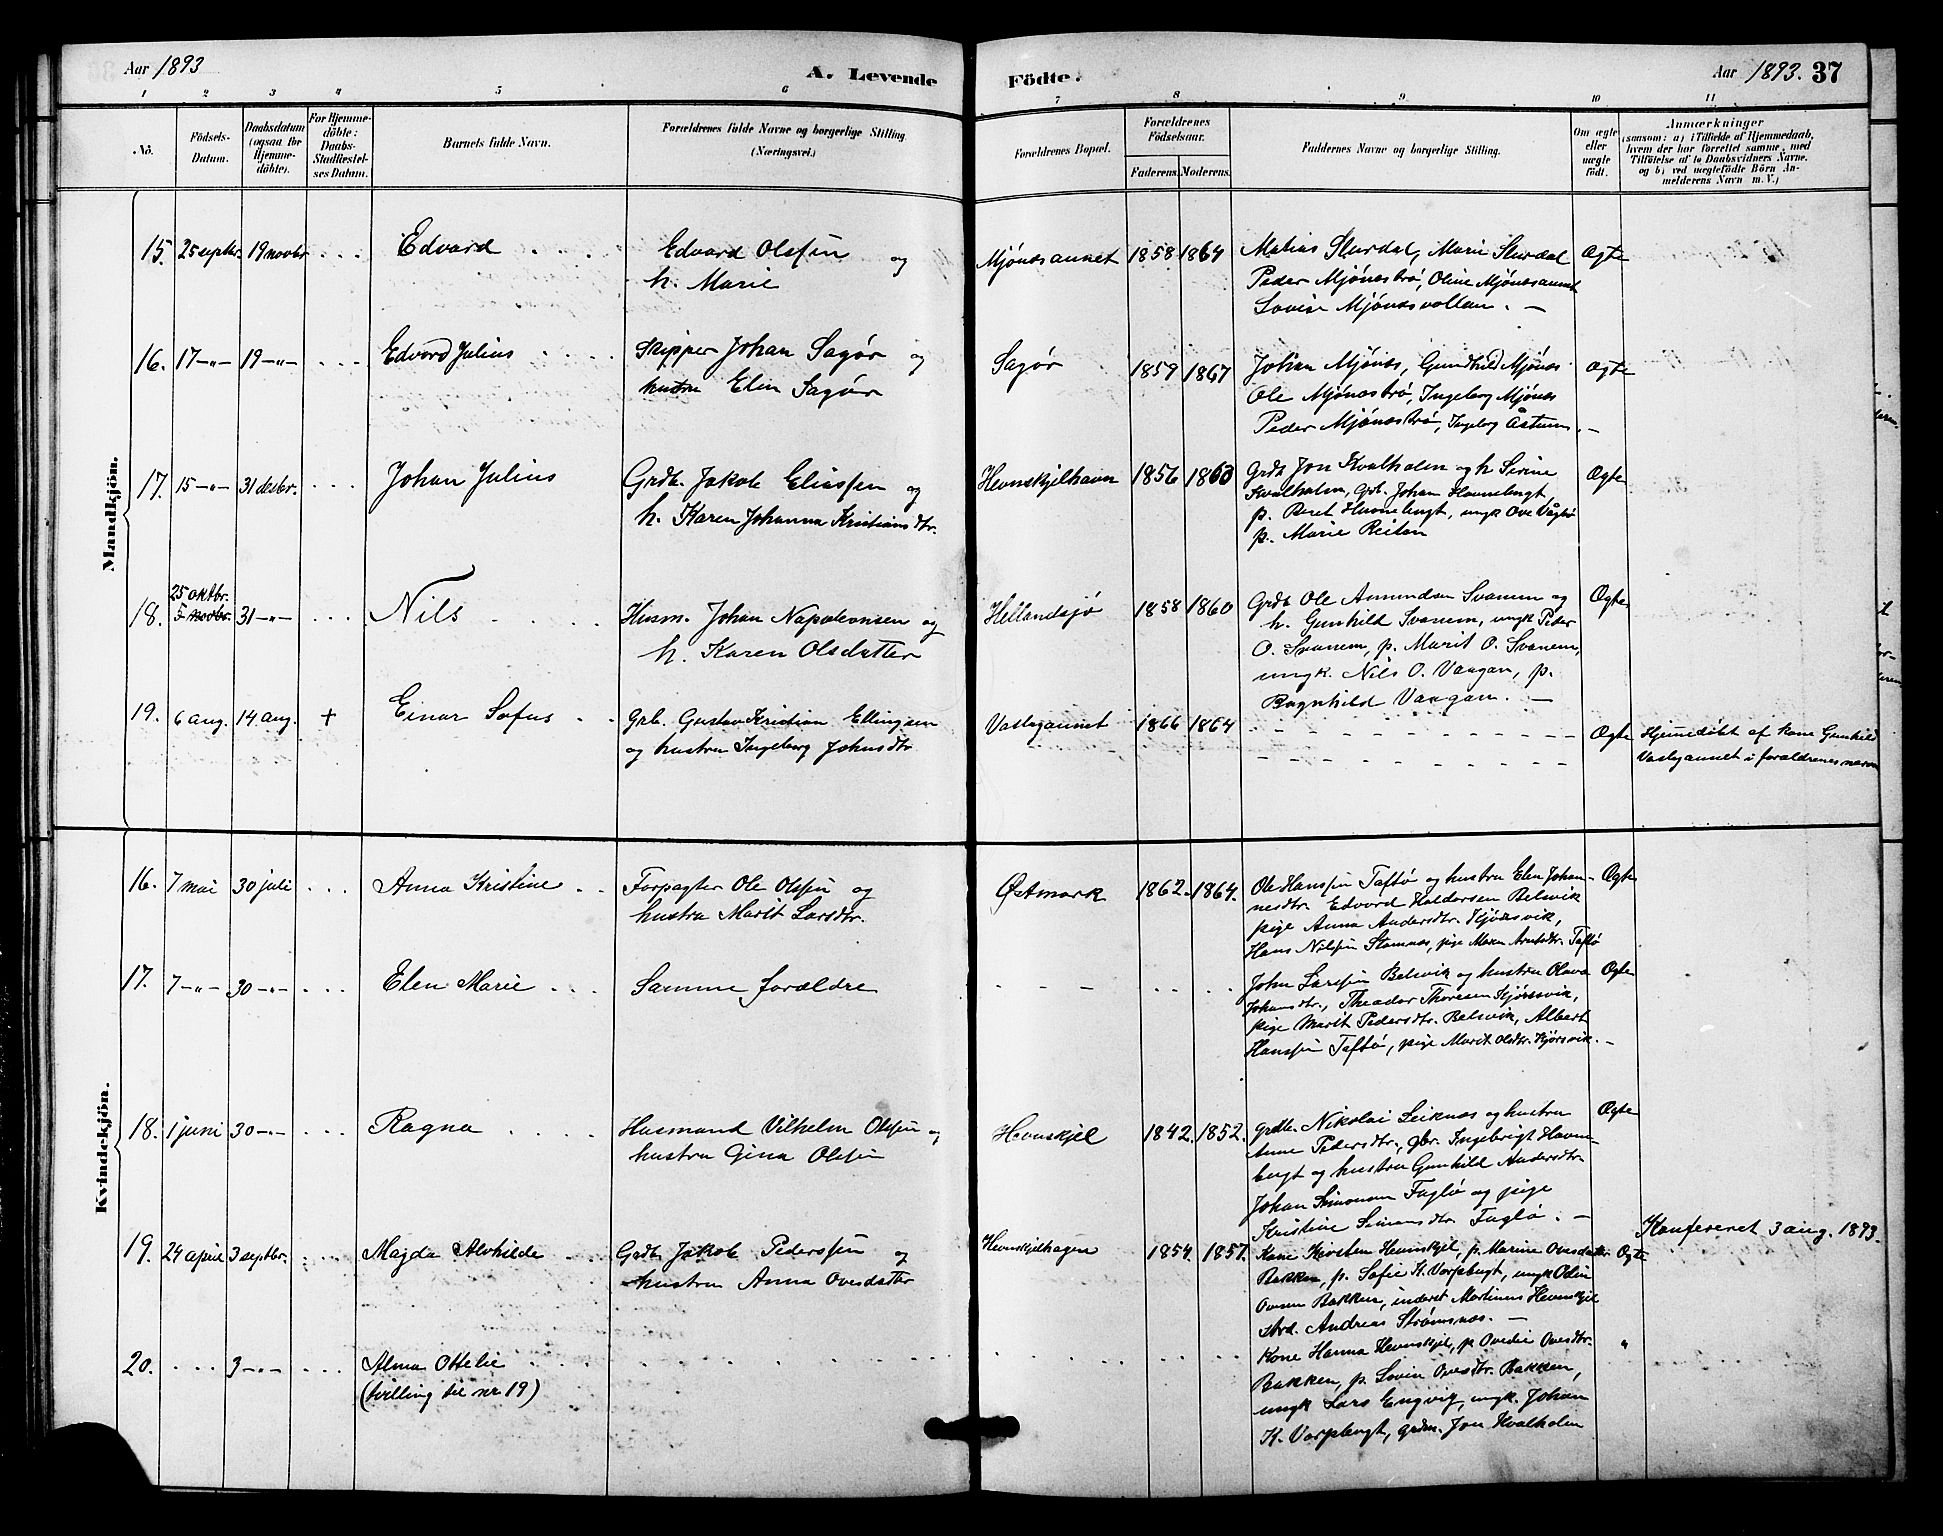 Aar 1893
A. Levende
Födte.
Aar 1893. 37
1 2 3 4 5 6 7 8 9 10 11
No.
Födsels-
Datum.
Daabsdatum
(ogsaa for
Hjemme-
döbte).
For Hjemme-
döbte:
Daabs-
Stadfæstel-
ses Datum.
Barnets fulde Navn.
Forældrenes fulde Navne og borgerlige Stilling
(Næringsvei.)
Forældrenes Bopæl.
Forældrenes
Födselsaar.
Faderens. Moderens.
Faddernes Navne og borgerlige Stilling.
Om ægte
eller
uægte
født.
Anmærkninger
(saasom: a) i Tilfælde af Hjemmedaab,
hvem der har forrettet samme, med
Tilföielse af to Daabsvidners Navne,
og b) ved uægtefödte Börn An-
melderens Navn m. V.)
Mandkjön.
15. 25 septbr. 19 novbr . . . Edvard . . .
Edvard Olssen og
h. Marie
Mjönesaunet 1858 1864
Matias Slurdal, Marie Slurdal
Peder Mjönesbrö, Oline Mjönesaunet
Lovise Mjönesvollan. —
Ægte
16. 17 —"— 19 —"— . . . Edvard Julius . . .
Skipper Johan Sagör og
hustru Elen Sagör
Sagör 1859 1867
Johan Mjönes, Gundhild Mjönes
Ole Mjönesbrö, Ingeborg Mjönes
Peder Mjönesbrö, Ingeborg Åstum. —
Ægte
17. 15 —"— 31 desbr. . . . Johan Julius
Grdb. Jakob Eliassen og
h. Karen Johanna Kristiansdtr.
Hevnskjelhavn 1856 1860
Grdb Jon Kvalholm og h Serine
Kvalholm, grb. Johan Havnebugt,
p. Beret Havnebugt, ungk Ove Vågbö
p. Marie Reitan
Ægte
25 oktbr.
18. 5 novbr. 31 —"— . . . Nils . . . .
Husm. Johan Napoleonsen og
h. Karen Olsdatter
Hellandsjö 1858 1860
Grdb Ole Amundsen Svanem og
h. Gunhild Svanem, ungk Peder
O. Svanem, p. Marit O. Svanem,
ungk. Nils O. Vaagan, p.
Ragnhild Vaagan. —
Ægte
19. 6 aug. 14. aug. + Einar Sofus . .
Grb. Gustav Kristian Ellingsen
og hustru Ingeborg Johnsdtr
Vaslagaunet 1866 1864
Ægte
Hjemmedöbt af kone Gunhild
Vaslagaunet i forældrenes nærvær
Kvindekjön.
16. 7 mai 30 juli . . . Anna Kristine . .
Forpagter Ole Olssen og
hustru Marit Larsdtr.
Østmark 1862. 1864.
Ole Hanssen Taftö og hustru Elen Johan-
nesdtr. Edvard Haldorsen Belsvik
pige Anna Andersdtr. Kjörsvik,
Hans Nilssen Stamnes, pige Maren Arntsdtr. Taftö
Ægte
17. 7 —"— 30 —"— . . . Elen Marie . . .
Samme forældre
John Larssen Belsvik og hustru Olava
Johansdtr., Theodor Thoresen Kjörsvik,
pige Marit Pedersdtr. Belsvik, Albert
Hanssen Taftö, pige Marit Olsdtr. Kjörsvik. —
Ægte
18. 1 juni 30 —"— . . . Ragna . . . .
Husmand Vilhelm Olssen og
hustru Gina Olssen
Hevnskjel 1842. 1852.
Grdb. Nikolai Leiknes og hustru
Anne Pedersdtr., gbr. Ingebrigt Havne-
bugt og hustru Gunhild Andersdtr.
Johan Simonsen Fuglö og pige
Kristine Simonsdtr. Fuglö. —
Ægte
19. 24 april 3 septbr. . . Majda Alvhilde . .
Grdb Jakob Pederssen og
hustru Anna Ovesdatter
Hevnskjelhagen 1854. 1857.
Kone Karsten Hevnskjel, p. Marine Ovesdatter
Bakken, p. Sofie K. Vorpbugt, ungk Odin
Ovesen Bakken, inderst Martinus Hevnskjel
strd. Andreas Strömsnes. —
Ægte
Konfereret 3 aug. 1893.
20. . . . 3 —"— . . . Alma Ottelie . . .
(tvilling til nr 19)
Kone Hanna Hevnskjel, p Ovedie Ovesdtr.
Bakken, p. Lovise Ovesdtr. Bakken,
ungk Lars Engvig, ungk. Johan
K. Vorpbugt, grdm. Jon Kvalholm
"